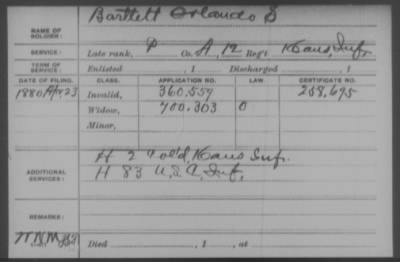 Bartlett Orlando S
NAME OF SOLDIER:
SERVICE: Late rank, P Co. A, 12 Reg't Kans, Inf,
TERM OF SERVICE: Enlisted , 1 Discharged , 1
DATE OF FILING. CLASS. APPLICATION NO. LAW. CERTIFICATE NO.
1880 Apr, 23 Invalid, 360.559 258,695
Widow, 700.303 O
Minor,
H 2 Col'd, Kans Inf.
ADDITIONAL SERVICES: H 83 U.S.C, Inf,
REMARKS:
Died , 1 , at